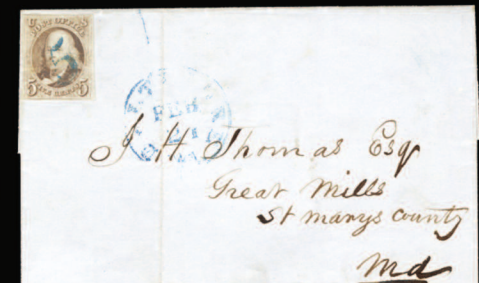 POST OFFICE
5 5
5
FEB
21
J H Thomas Esq
Great Mills
St marys county
Md